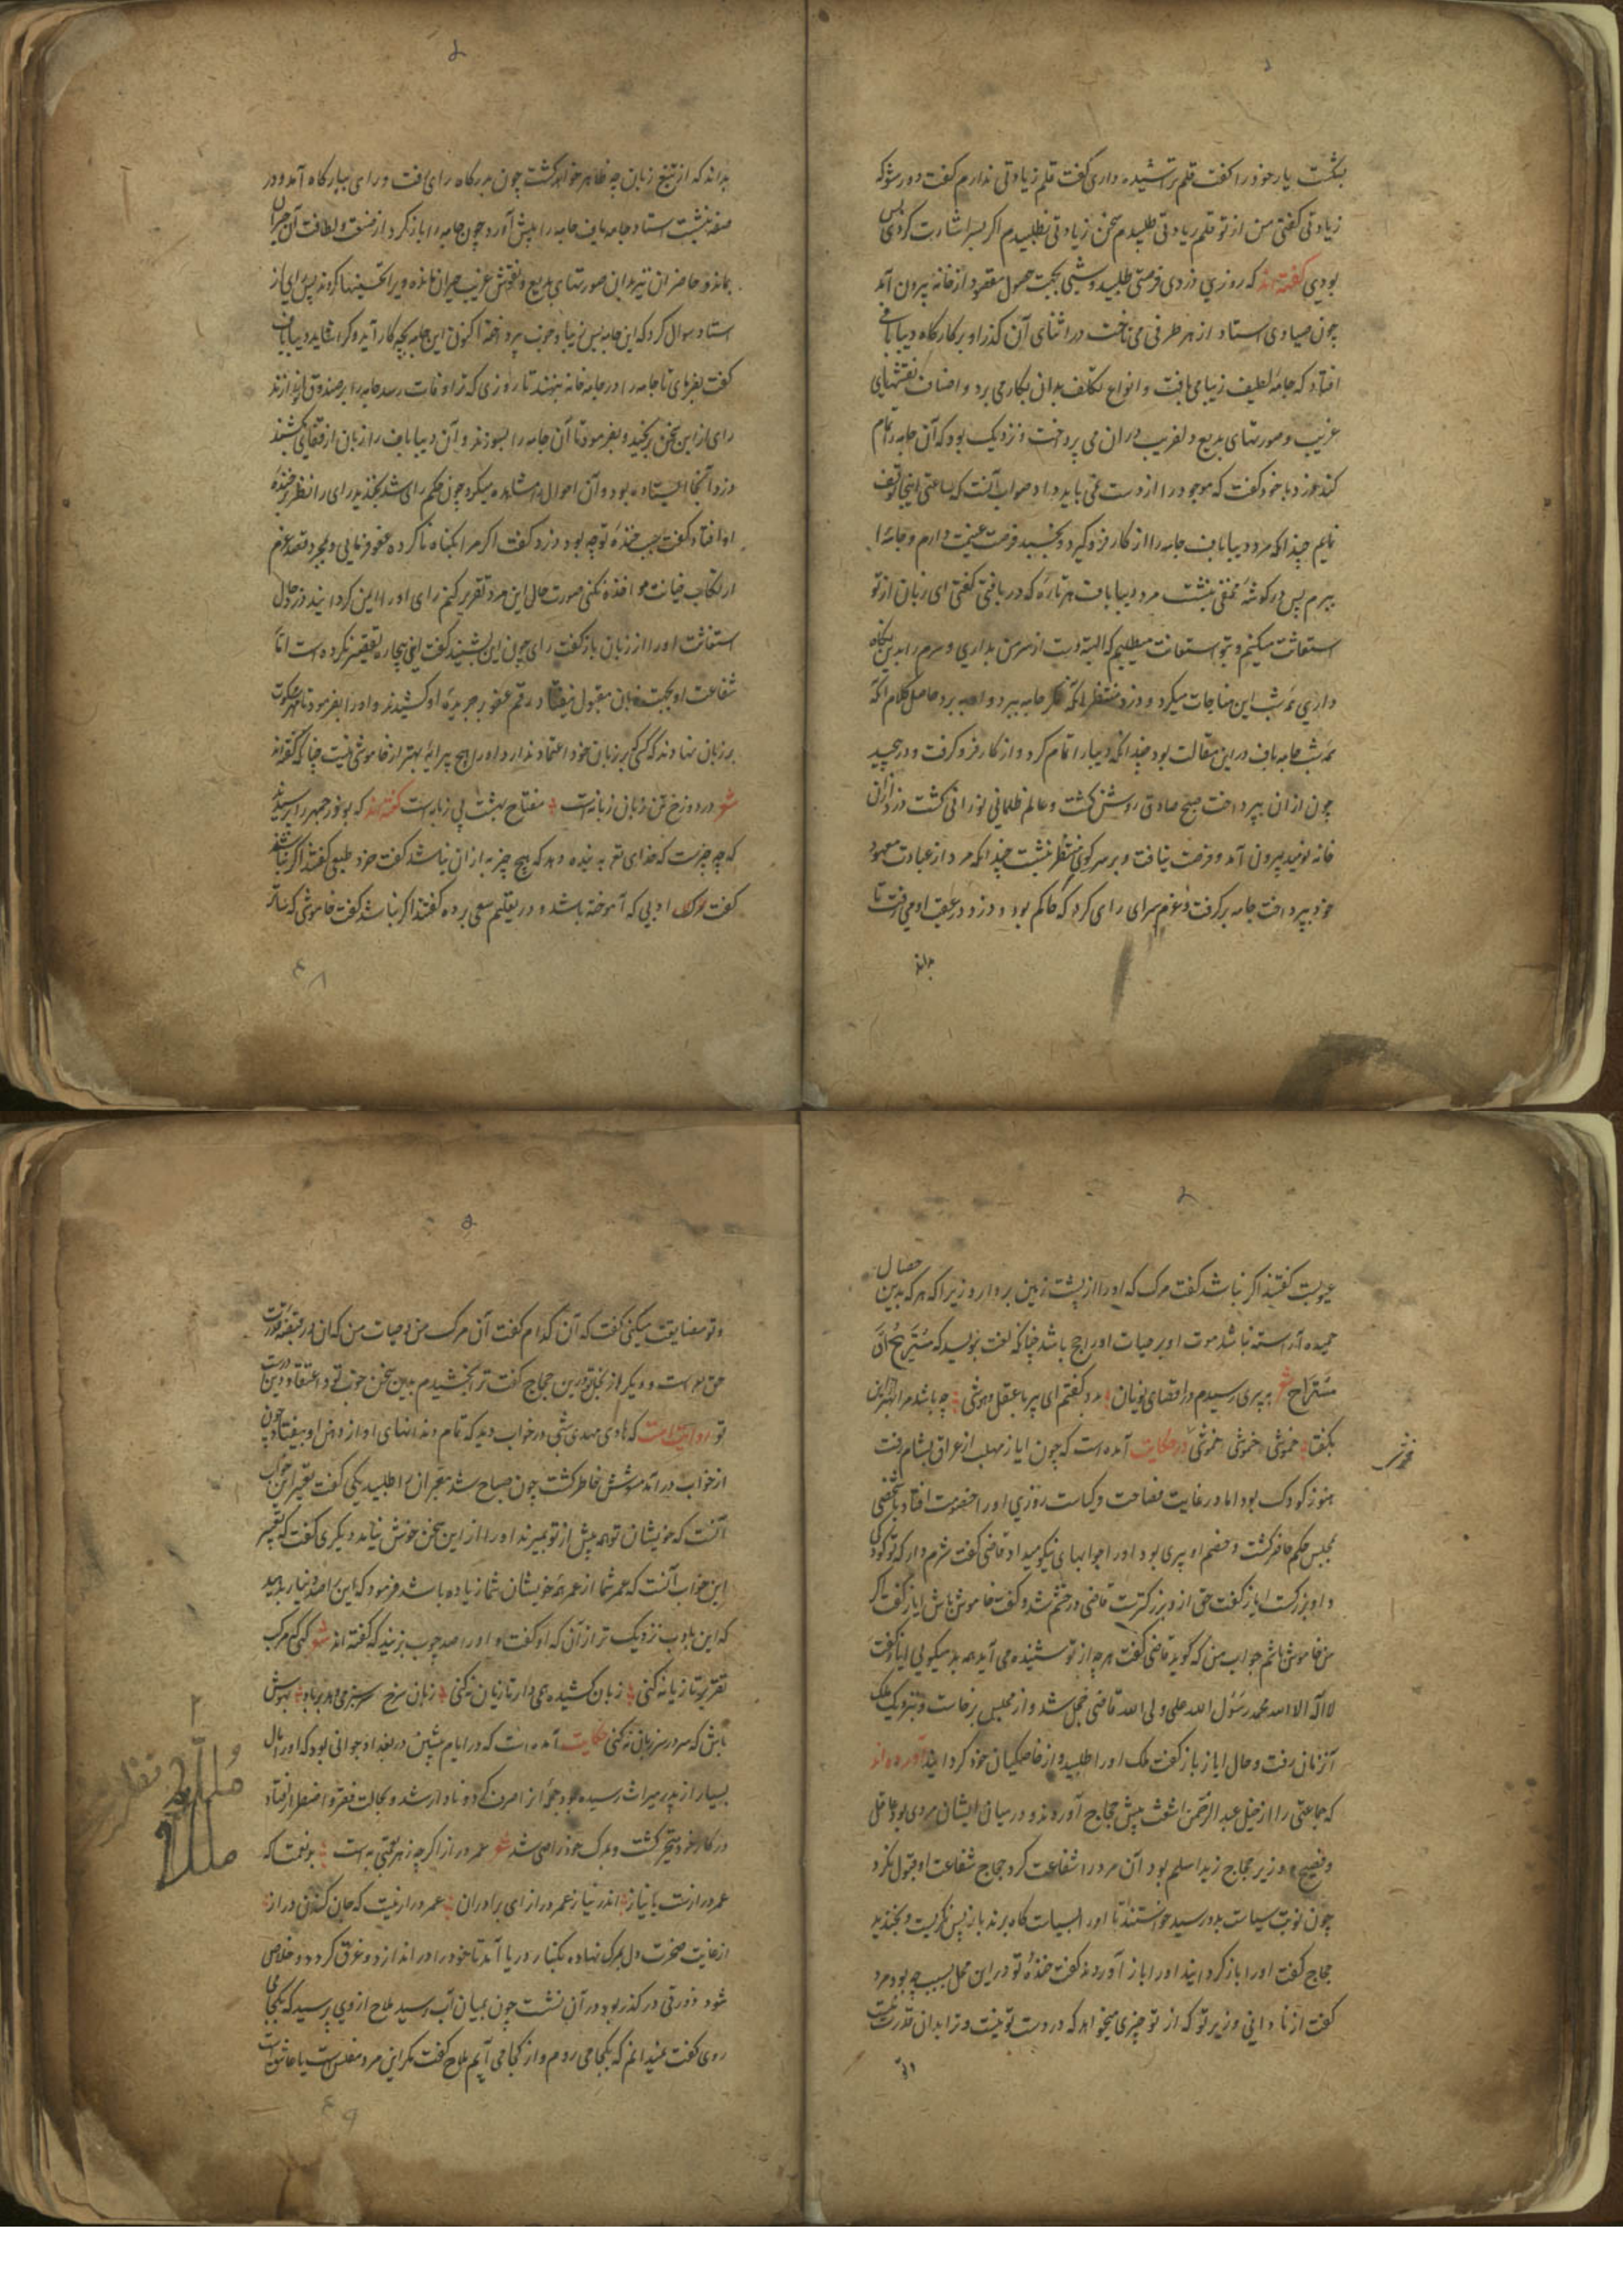 بشکست یار خود را گفت قلم تراشیده داری گفت قلم زیادتی ندارم گفت دور شو که
زیادتی گفتی من از تو قلم زیادتی طلبیدم سخن زیادتی نطلبیدم اکر بسر اشارت کردی بس
بودی گفته‌اند که روزی دزدی فرصتی طلبید و شبی بجهت حصول مقصود از خانه بیرون آمد
چون صیادی استاد از هر طرفی می تاخت در اثنای آن گذر او بر کارگاه دیبا بافی
افتاد که جامهٔ لطیف زیبا می بافت و انواع تکلف بدان بکار می برد و اصناف نقشهای
غریب و صورتهای بدیع دلفریب در ان می پرداخت و نزدیک بود که آن جامه را تمام
کند دزد با خود گفت که موجود را از دست نمی باید داد صواب آنست که ساعتی اینجا توقف
نمایم چندانکه مرد دیبا باف جامه را از کار فرو گیرد و بخسبد فرصت غنیمت دارم و جامه را
ببرم پس در کوشهٔ مخفی بنشست مرد دیبا باف هر تاره که در بافتی گفتی ای زبان از تو
استعانت میکنم و بتو استعانت میطلبم که البته دست از سر من بداری و سرم را بدین نگاه
داری همه شب این مناجات میکرد و دزد منتظر انکه جامه ببرد حاصل کلام آنکه
همه شب جامه باف در این مقالت بود چندانکه دیبا را تمام کرد و از کار فرو گرفت و در پیچید
چون از ان بپرداخت صبح صادق روشن کشت و عالم ظلمانی نورانی کشت دزد از ان
خانه نومید بیرون آمد و فرصت نیافت و بر سر کوی منتظر بنشست چندانکه مرد از عبادت معهود
خود بپرداخت جامه بر گرفت و عزم سرای رای کرد که حاکم بود و دزد در عقب او می رفت تا
بداند
بداند که از تیغ زبان چه ظاهر خواهد کشت چون بدرکاه رای رفت و رای ببارکاه آمد و در
صفه بنشست استاد جامه باف جامه را پیش آورد چون جامه را باز کرد از صنعت و لطافت آن حیران
بماند و حاضران نیز بدان صورتهای بدیع و نقش غریب حیران مانده و ویرا تحسینها کردند پس رای از
استاد سوال کرد که این جامه بس زیبا و خوب پرداخته اکنون این جامه بچه کار آید و کرا شاید دیبا باف
گفت بفرمای تا جامه را در جامه خانه بنهند تا روزی که ترا وفات رسد جامه را بر صندوق تو اندازند
رای از این سخن برنجید و بفرمود تا آن جامه را بسوزند و آن دیبا باف را زبان از قفای بکشند
دزد آنجا ایستاده بود و آن احوال مشاهده میکرد چون حکم رای شد بخندید رای را نظر بر خنده
او افتاد گفت سبب خندهٔ تو چه بود دزد گفت اکر مرا بکناه ناکرده عفو فرمایی و بمجرد قصد عزم
ارتکاب خیانت مواخذه نکنی صورت حال این مرد تقریر کنم رای او را ایمن کردانید دزد حال
استغاثت او را از زبان باز گفت رای چون این بشنید گفت این بیچاره تقصیر نکرده است اما
شفاعت او بجهت زبان مقبول نیفتاد رقم عفو بر جریدهٔ او کشیدند و او را بفرمود تا مهر سکوت
بر زبان نهادند که کسی بر زبان خود اعتماد ندارد او را هیچ پیرایهٔ بهتر از خاموشی نیست چنانکه گفته‌اند
شعر در دوزخ تن زبان زبانه است مفتاح بهشت بی زبانیست گفته‌اند که بوذرجمهر را پرسیدند
که چه چیزست که خدای تعالی به بنده دهد که هیچ چیز به از ان نباشد گفت خرد طبعی گفتند اکر نباشد
گفت ادبی که آموخته باشد و در تعلیم سعی برده گفتند اکر نباشد گفت خاموشی که ساتر
عیوبست گفتند اکر نباشد گفت مرک که او را از پشت زمین بردارد زیرا که هر که بدین خصال
حمیده آراسته نباشد موت او بر حیات او راجح باشد چنانکه لغت نویسد که مستریح او
مستراح شعر به پیری رسیدم در اقصای یونان بدو گفتم ای پیر با عقل و هوشی چه باشد مرا بهترین
بگفتا خموشی خموشی خموشی در حکایت آمده است که چون ایاز مهلب از عراق بشام رفت
هنوز کودک بود اما در غایت فصاحت و کیاست روزی او را خصومت افتاد با شخصی
بمجلس حکم حاضر گشت و خصم او پیری بود او را جوابهای نیکو میداد قاضی گفت شرم دار که تو کودکی
و او بزرگست ایاز گفت حق از و بزرگترست قاضی در خشم شد و گفت خاموش باش ایاز گفت اگر
من خاموش باشم جواب من که گوید قاضی گفت هر چه از تو شنیده می آید همه بد میگویی ایاز گفت
لا اله الا الله محمد رسول الله علی ولی الله قاضی خجل شد و از مجلس برخاست و بنزدیک ملک
آن زمان رفت و حال ایاز باز گفت ملک او را طلبید و از خاصگیان خود گردانید آورده‌اند
که جماعتی را از خیل عبد الرحمن اشعث پیش حجاج آوردند و در میان ایشان مردی بود عاقل
و فصیح وزیر حجاج زید اسلم بود آن مرد را شفاعت کرد حجاج شفاعت او قبول نکرد
چون نوبت سیاست بدو رسید خواستند تا او را بسیاست گاه برند باز پس نگریست و بخندید
حجاج گفت او را باز گردانید او را باز آوردند گفت خندهٔ تو در این محل بسبب چه بود مرد
گفت از نادانی وزیر تو که از تو چیزی میخواهد که در دست تو نیست و ترا بدان قدرت نیست
و تو مضایقت میکنی گفت که آن کدام گفت آن مرک من و حیات من که ان در قبضهٔ قدرت
حق است و دیگر از بخل تو در این حجاج گفت ترا بخشیدم بدین سخن خوب تو و اعتقاد درست و دین
تو روایت است که هادی مهدی شبی در خواب دید که تمام دندانهای او از دهن او بیفتاد چون
از خواب در آمد مشوش خاطر گشت چون صباح شد معبران را طلبید یکی گفت تعبیر این خواب
آنست که خویشان تو همه پیش از تو بمیرند او را از این سخن خوش نیامد دیگری گفت که تعبیر
این خواب آنست که عمر شما از عمر همه خویشان شما زیاده باشد فرمود که این را صد دینار بدهید
که این بادب نزدیک تر از آن که او گفت و او را صد چوب بزنید که گفته‌اند شعر
تقریر تا زیانه کنی زبان کشیده همی دار تا زیان نکنی زبان سرخ سر سبز می دهد بر باد بهوش
باش که سر در سر زبان نکنی حکایت آمده است که در ایام پیشین در بغداد جوانی بود که او را مال
بسیار از پدر میراث رسیده بود همه را صرف کرد و نادار شد و بحالت فقر و اضطرار افتاد
در کار خود متحیر گشت و بمرک خود راضی شد شعر عمر دراز اگر چه ز هر نعمتی به است
عمر درازست با نیاز اندر نیاز عمر دراز ای برادران عمر دراز نیست که جان کندن دراز
از غایت ضجرت دل بمرک نهاده بکنار دریا آمد تا خود را در اندازد و غرق گردد و خلاص
شود زورقی در گذر بود در آن نشست چون بمیان آب رسید ملاح از وی پرسید که بکجا
روی گفت نمیدانم که بکجا می روم و از کجا می آیم ملاح گفت مگر این مرد مفلس است یا عاشق است